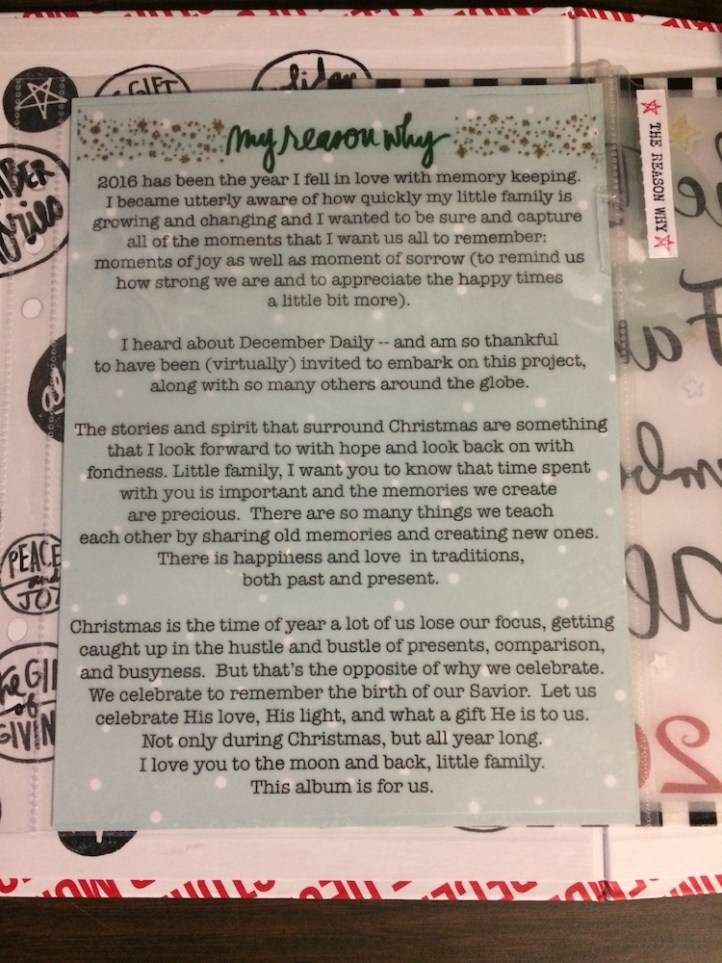 my reason why
2016 has been the year I fell in love with memory keeping.
I became utterly aware of how quickly my little family is
growing and changing and I wanted to be sure and capture
all of the moments that I want us all to remember:
moments of joy as well as moment of sorrow (to remind us
how strong we are and to appreciate the happy times
a little bit more).
I heard about December Daily -- and am so thankful
to have been (virtually) invited to embark on this project,
along with so many others around the globe.
The stories and spirit that surround Christmas are something
that I look forward to with hope and look back on with
fondness. Little family, I want you to know that time spent
with you is important and the memories we create
are precious. There are so many things we teach
each other by sharing old memories and creating new ones.
There is happiness and love in traditions,
both past and present.
Christmas is the time of year a lot of us lose our focus, getting
caught up in the hustle and bustle of presents, comparison,
and busyness. But that's the opposite of why we celebrate.
We celebrate to remember the birth of our Savior. Let us
celebrate His love, His light, and what a gift He is to us.
Not only during Christmas, but all year long.
I love you to the moon and back, little family.
This album is for us.
THE REASON WHY
GIFT
PEACE
and
JOY
of